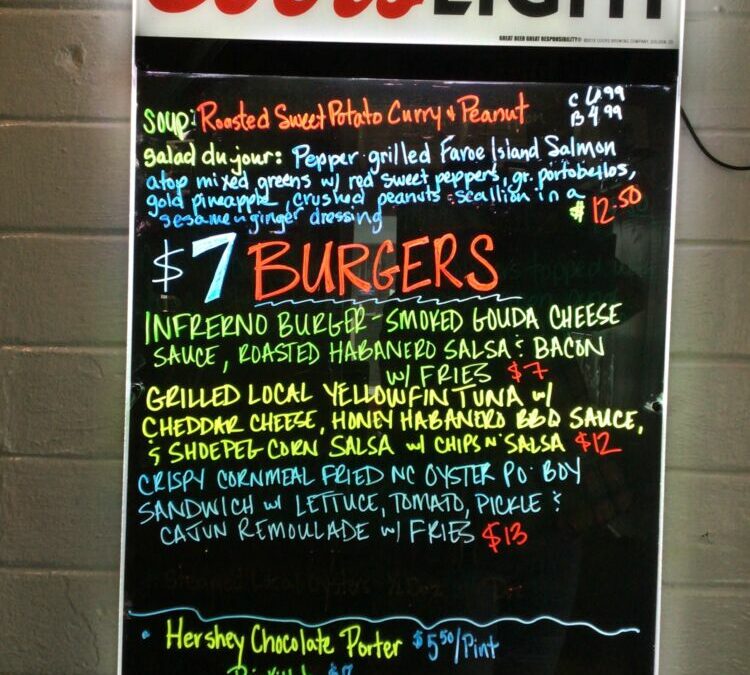 Coors LIGHT
GREAT BEER GREAT RESPONSIBILITY®
SOUP: Roasted Sweet Potato Curry & Peanut C 6.99
B 4.99
Salad du jour: Pepper grilled Faroe Island Salmon
atop mixed greens w/ red sweet peppers, gr. portobellos,
gold pineapple, crushed peanuts & scallion in a
sesame & ginger dressing $ 12.50
$7 BURGERS
INFRERNO BURGER - SMOKED GOUDA CHEESE
SAUCE, ROASTED HABANERO SALSA & BACON
w/ FRIES $7
GRILLED LOCAL YELLOWFIN TUNA w/
CHEDDAR CHEESE, HONEY HABANERO BBQ SAUCE,
& SHOEPEG CORN SALSA w/ CHIPS N' SALSA $12
CRISPY CORNMEAL FRIED NC OYSTER PO' BOY
SANDWICH w/ LETTUCE, TOMATO, PICKLE &
CAJUN REMOULADE w/ FRIES $13
• Hershey Chocolate Porter $5.50/Pint